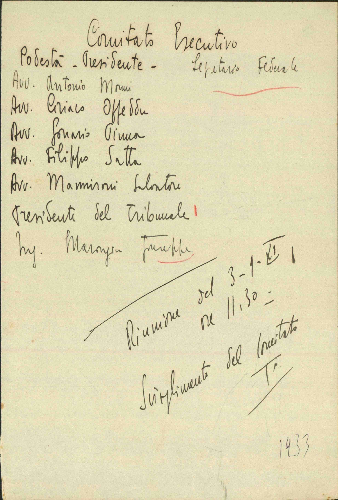 Comitato Esecutivo
Podestà - Presidente - Segretario Federale
Avv. Antonio Monni
Avv. Ciriaco Offeddu
Avv. Gonario Pinna
Avv. Filippo Satta
Avv. Mannironi Salvatore
Presidente del Tribunale
Ing. Marongiu Giuseppe
Riunione del 3-1-XI
ore 11.30
del Comitato
1933